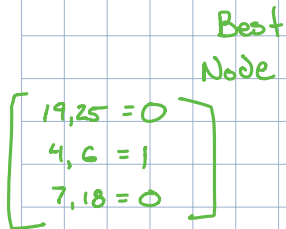 Best
Node
19,25 = 0
4, 6 = 1
7, 18 = 0